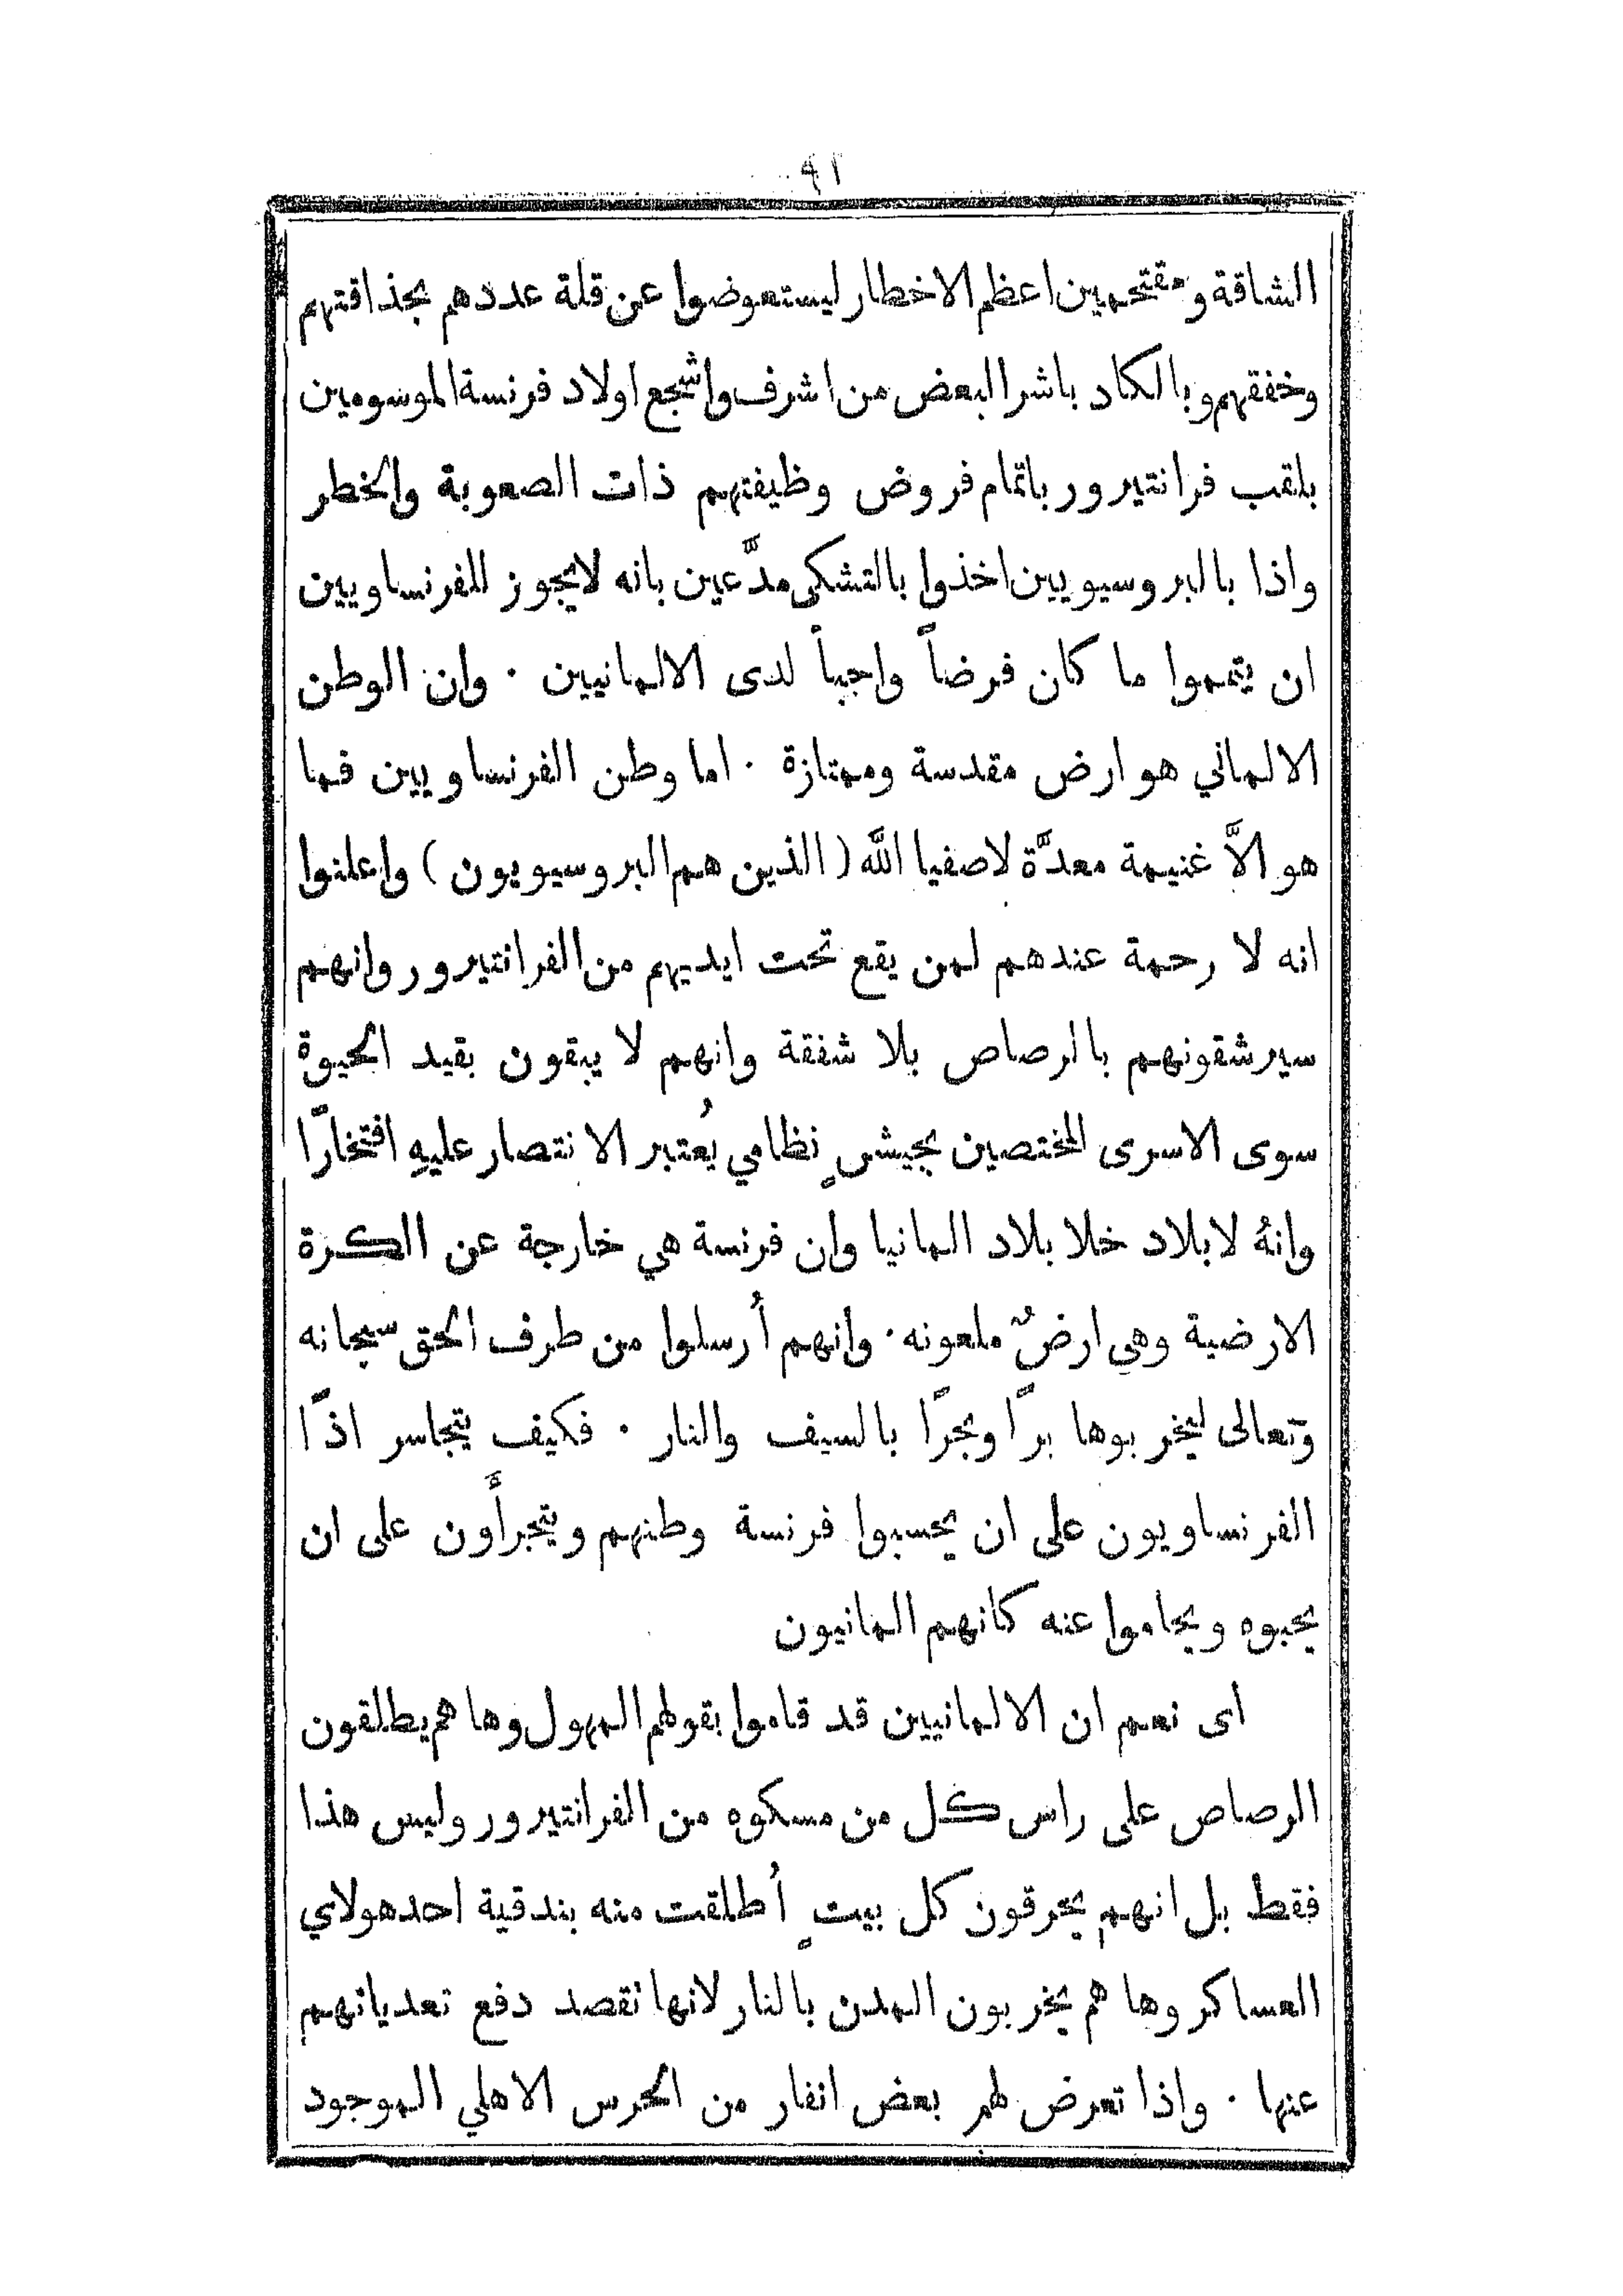 ٩٢
الشاقة ومقتحمين اعظم الاخطار ليستعوضوا عن قلة عددهم بحذاقتهم
وخفقهم وبالكاد باشر البعض من اشرف واشجع اولاد فرنسة الموسومين
بلقب فرانتيرور باتمام فروض وظيفتهم ذات الصعوبة والخطر
واذا بالبروسيويين اخذوا بالتشكى مدَّعين بانه لايجوز للفرنساويين
ان يتمموا ما كان فرضاً واجباً لدى الالمانيين . وان الوطن
الالماني هو ارض مقدسة وممتازة . اما وطن الفرنساويين فما
هو الاَّ غنيمة معدَّة لاصفيا الله ( الذين هم البروسيويون ) واعلنوا
انه لا رحمة عندهم لمن يقع تحت ايديهم من الفرانتيرور وانهم
سيرشقونهم بالرصاص بلا شفقة وانهم لا يبقون بقيد الحيوة
سوى الاسرى المختصين بجيشٍ نظامي يُعتبر الانتصار عليهِ افتخارًا
وانهُ لابلاد خلا بلاد المانيا وان فرنسة هي خارجة عن الكرة
الارضية وهى ارضٌ ملعونه . وانهم أُرسلوا من طرف الحق سبحانه
وتعالى ليخربوها برًا وبحرًا بالسيف والنار . فكيف يتجاسر اذًا
الفرنساويون على ان يحسبوا فرنسة وطنهم ويتجرأون على ان
يحبوه ويحاموا عنه كانهم المانيون
اى نعم ان الالمانيين قد قاموا بقولهم المهول وها هم يطلقون
الرصاص على راس كل من مسكوه من الفرانتيرور وليس هذا
فقط بل انهم يحرقون كل بيتٍ أُطلقت منه بندقية احد هولاي
العساكر وها هم يخربون المدن بالنار لانها تقصد دفع تعدياتهم
عنها . واذا تعرض لهم بعض انفار من الحرس الاهلي الموجود